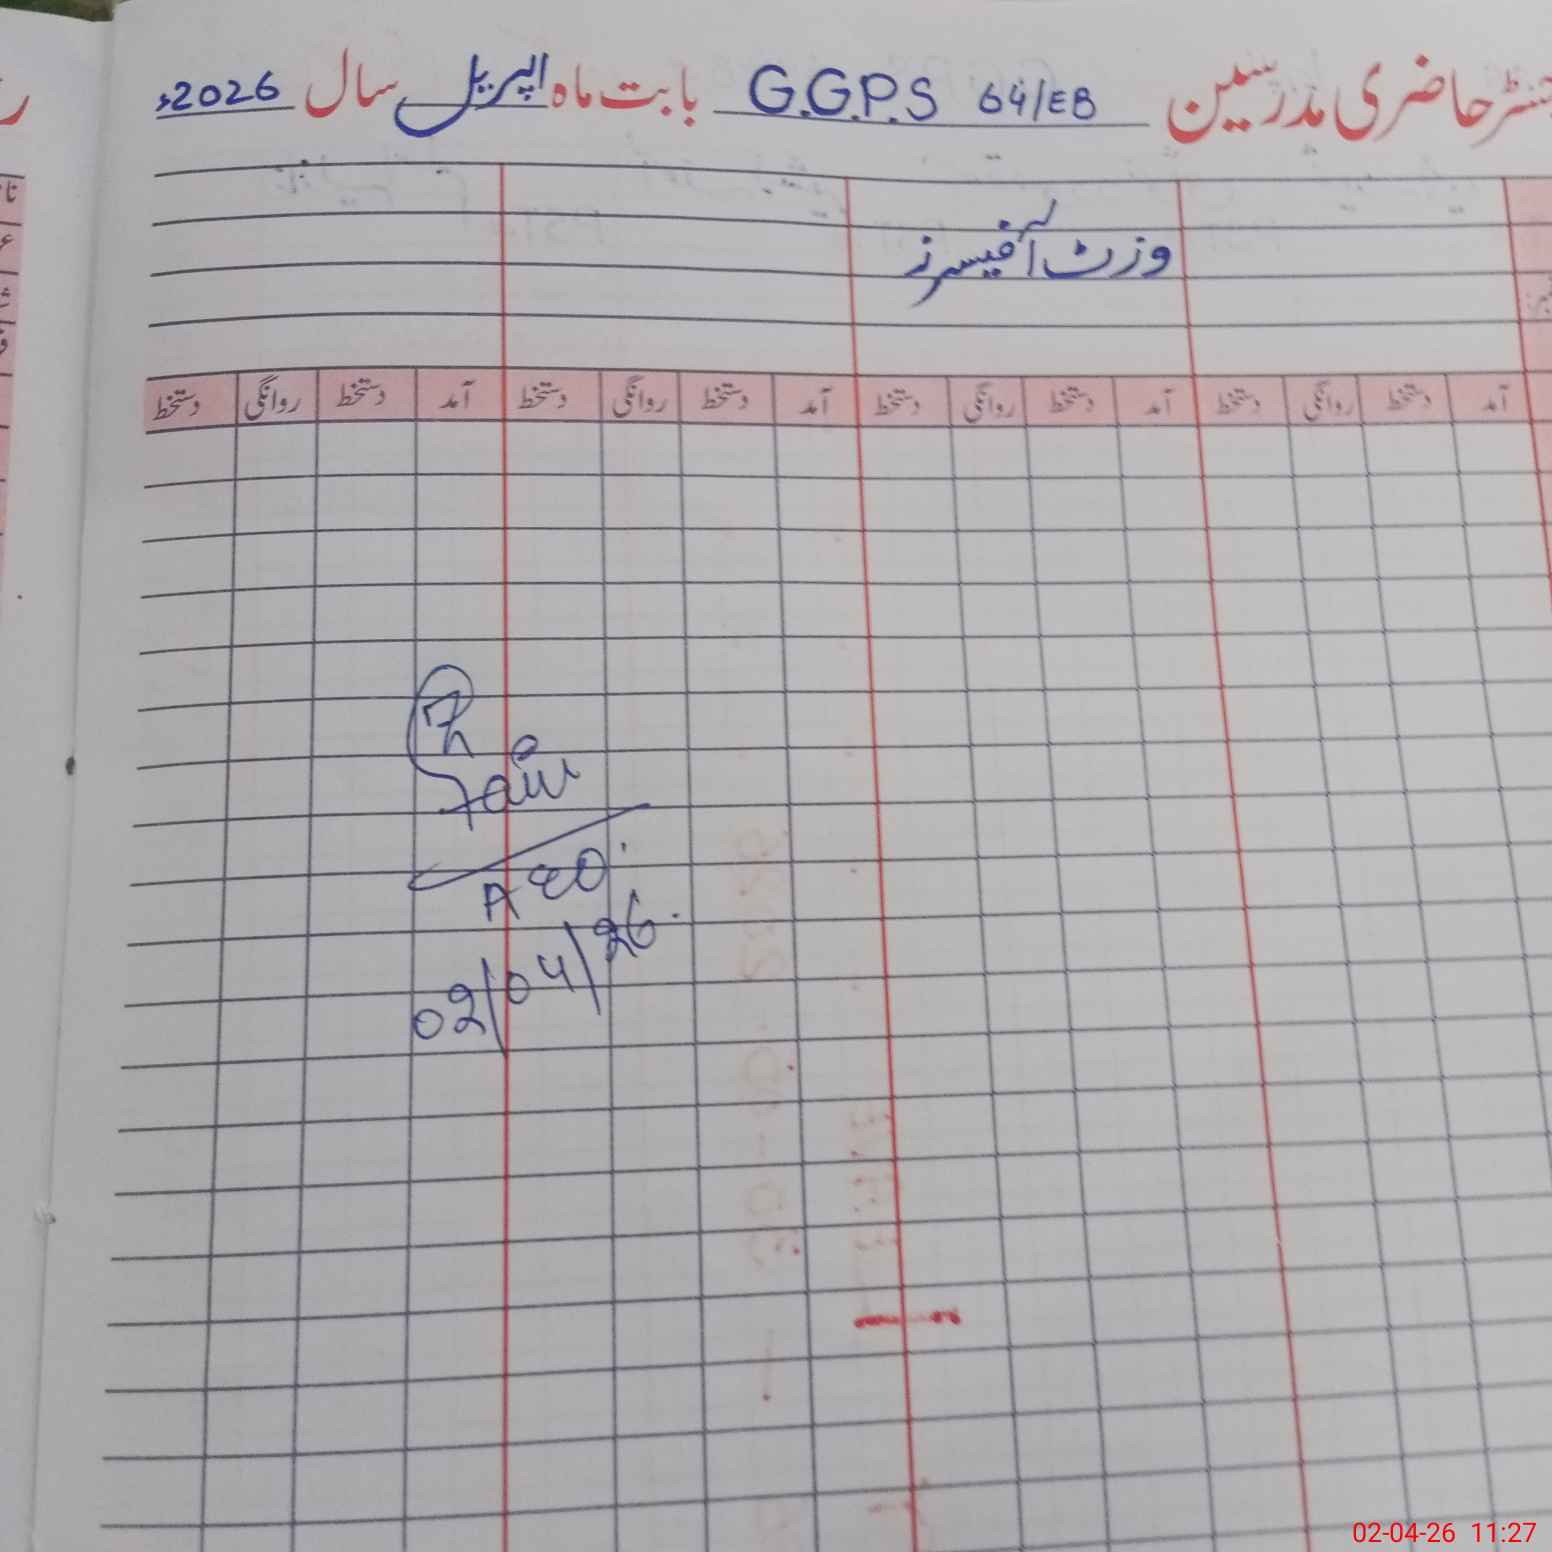 رجسٹر حاضری مدرسین G.G.P.S 64/EB بابت ماہ اپریل سال 2026ء
وزٹ آفیسرز
آمد دستخط روانگی دستخط آمد دستخط روانگی دستخط آمد دستخط روانگی دستخط آمد دستخط روانگی دستخط
AEO
02/04/26
02-04-26 11:27